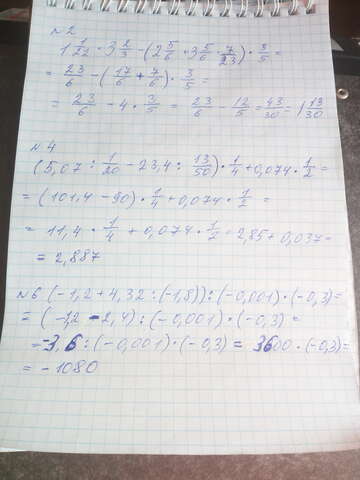 №2
1 1/22 · 3 2/3 - (2 5/6 + 3 5/6 · 7/23) · 3/5 =
= 23/6 - (17/6 + 7/6) · 3/5 =
= 23/6 - 4 · 3/5 = 23/6 - 12/5 = 43/30 = 1 13/30
№4
(5,07 : 1/20 - 23,4 : 13/50) · 1/4 + 0,074 · 1/2 =
= (101,4 - 90) · 1/4 + 0,074 · 1/2 =
= 11,4 · 1/4 + 0,074 · 1/2 = 2,85 + 0,037 =
= 2,887
№6 (-1,2 + 4,32 : (-1,8)) : (-0,001) · (-0,3) =
= (-1,2 - 2,4) : (-0,001) · (-0,3) =
= -3,6 : (-0,001) · (-0,3) = 3600 · (-0,3) =
= -1080